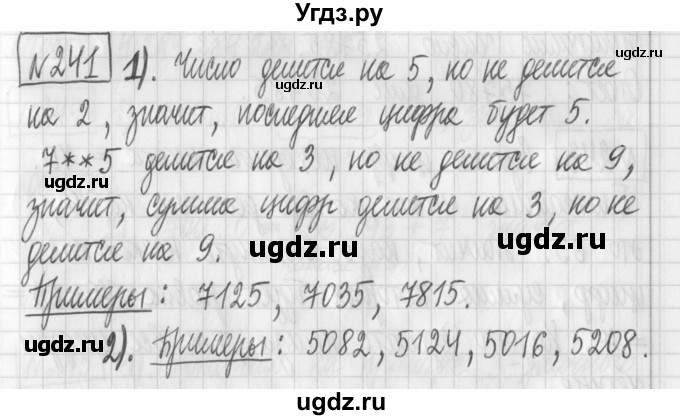 Угдз.ру
№241 1). Число делится на 5, но не делится
на 2, значит, последняя цифра будет 5.
7**5 делится на 3, но не делится на 9,
значит, сумма цифр делится на 3, но не
делится на 9.
Примеры: 7125, 7035, 7815.
2). Примеры: 5082, 5124, 5016, 5208.
ugdz.ru
ugdz.ru
ugdz.ru
ugdz.ru
ugdz.ru
ugdz.ru
ugdz.ru
ugdz.ru